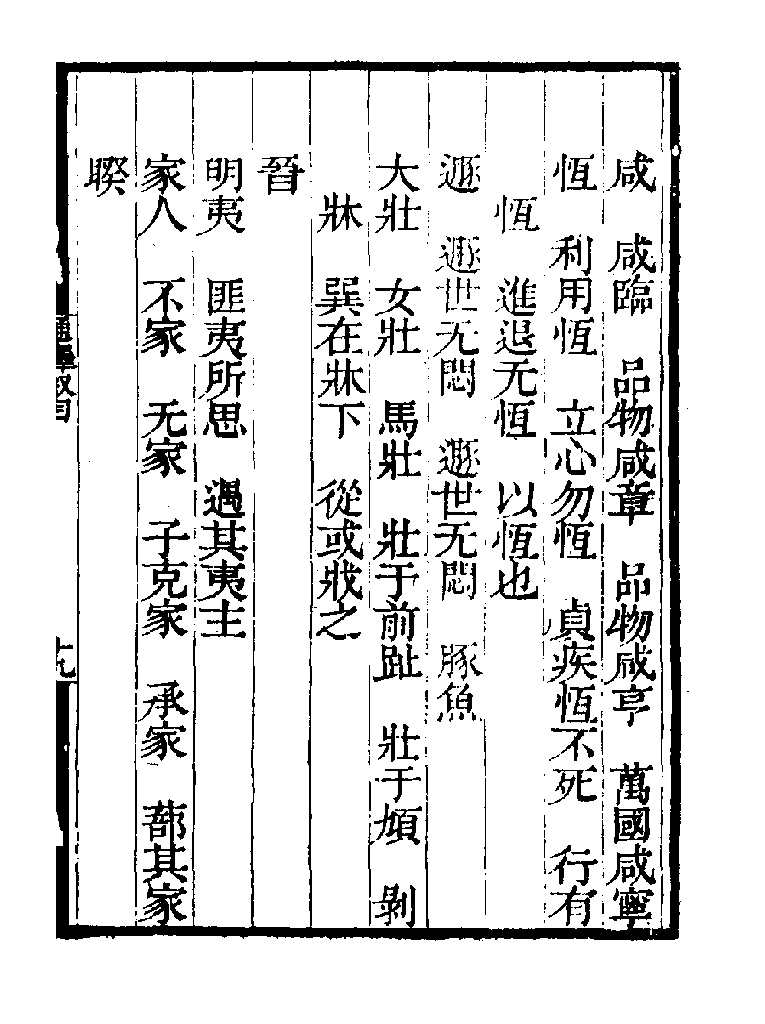 咸　咸臨　品物咸章　品物咸亨　萬國咸寧
恆　利用恆　立心勿恆　貞疾恆不死　行有
恆　進退无恆　以恆也
遯　遯世无悶　遯世无悶　豚魚
大壯　女壯　馬壯　壯于前趾　壯于頄　剝
牀　巽在牀下　從或戕之
晉
明夷　匪夷所思　遇其夷主
家人　不家　无家　子克家　承家　蔀其家
睽
十九